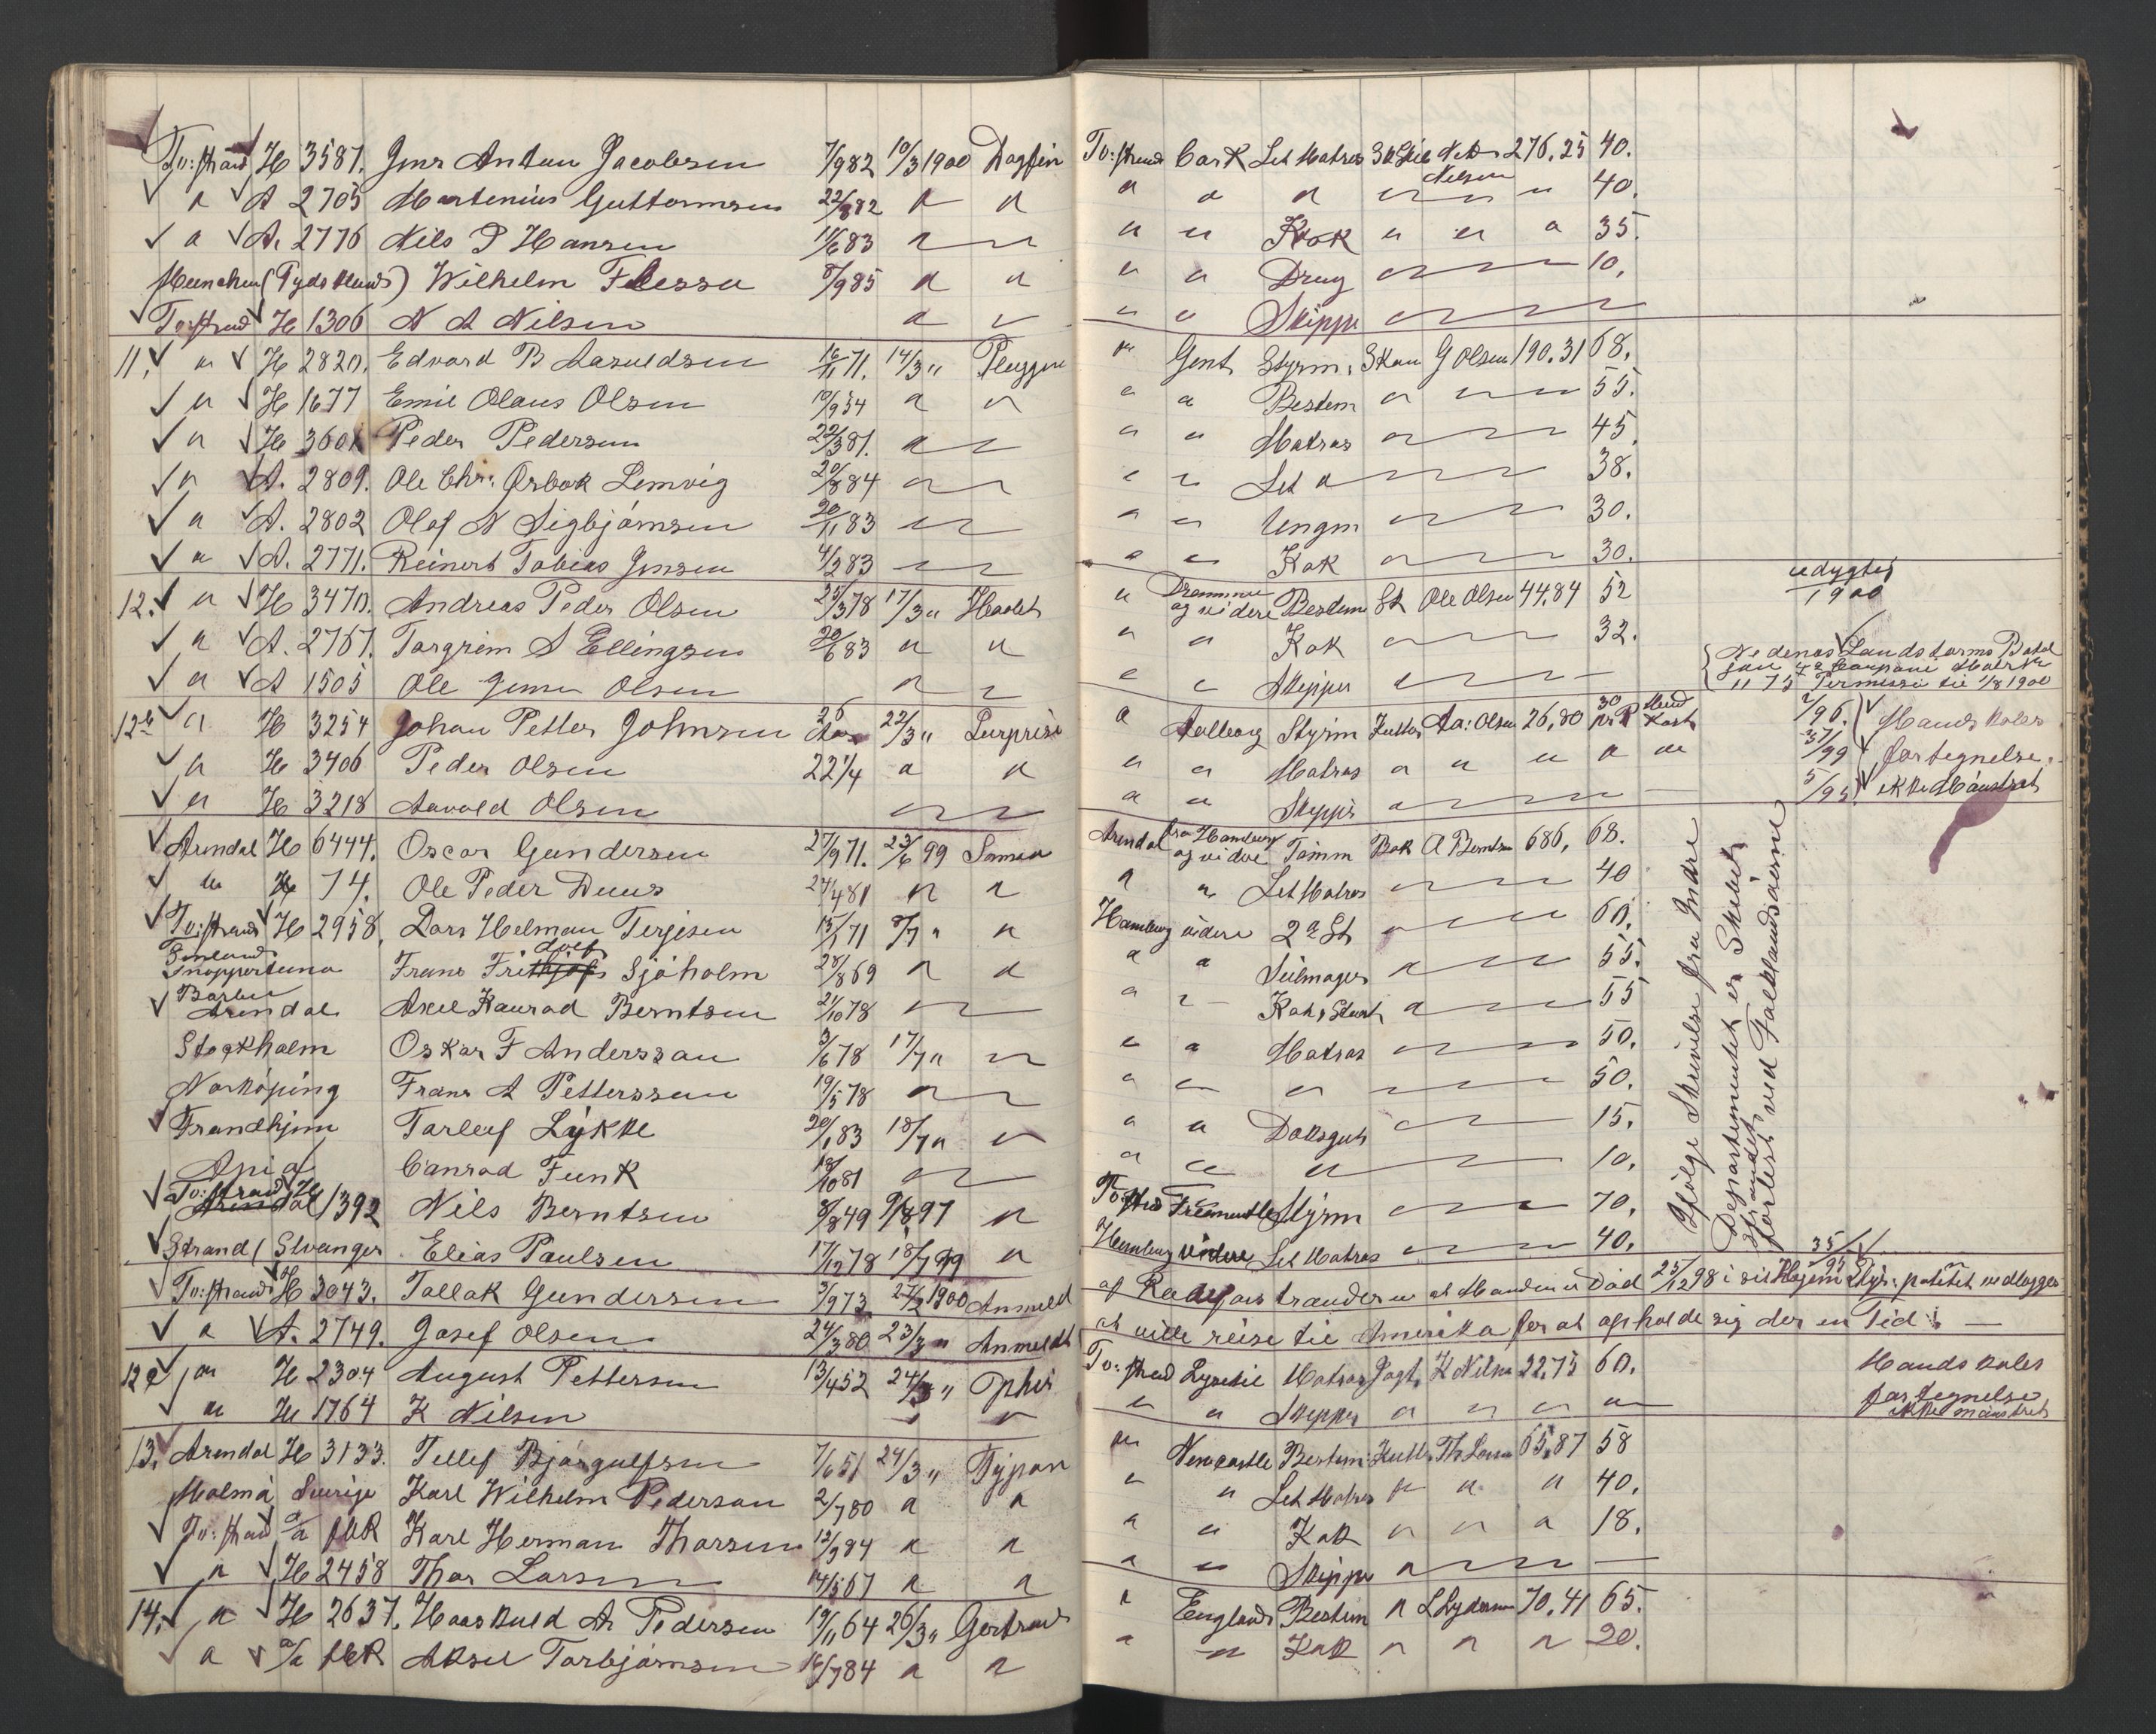 Tv:strand H 3587. Jens Anton Jacobsen 7/9 82 10/3 1900 Dagfin
" A 2705 Martenius Guttormsen 22/8 82 " "
" A. 2776 Nils P Hansen 11/6 83 " "
München (Tydskland) Wilhelm Flessa 8/9 85 " "
Tv:strand H 1306 N A Nilsen " "
11. " H 2820. Edvard B Aasuldsen 16/11 71. 14/3 "
" H 1677 Emil Olaus Olsen 10/9 54 " "
" H 3601 Peder Pedersen 22/3 81. " "
" A. 2809. Ole Chr. Ørbæk Lemvig 20/8 84 " "
" A. 2802 Olaf N Sigbjörnsen 20/11 83 " "
" A. 2771. Reinert Tobias Jensen 4/2 83 " "
12. " H 3470. Andreas Peder Olsen 25/3 78 17/3 " Haabet
" A. 2767. Torgrim S Ellingsen 20/6 83 " "
" A 1505 Ole Jensen Olsen " "
12b " H 3254 Johan Petter Johnsen 26 Aar 22/3 " Surprise
" H 3406 Peder Olsen 22 1/4 " "
" H 3218 Aavold Olsen " "
Arendal H 6444. Oscar Gundersen 27/9 71. 23/6 99 Samoa
" H 74. Ole Peder Duus 24/4 81 " "
Tv:strand H 2958. Lars Helman Terjesen 15/1 71 8/7 " "
Finland
Frans Frithjof dolf Sjöholm 28/8 69 " "
Barbu
Arendal Axel Konrad Berntsen 21/10 78 " "
Stockholm Oskar F Andersson 3/6 78 17/7 " "
Norköping Frans A Pettersson 19/5 78 " "
Trondhjem Torleif Lykke 20/1 83 18/7 " "
Apia Conrad Funk 18/10 81 " "
Tv:strand H
Arendal 1392 Nils Berntsen 8/8 49 9/8 97 "
Strand / Stvanger Elias Paulsen 17/12 78 18/7 99 "
Tv:strand H 3043. Tallak Gundersen 3/9 73 1900 Anmeld
" A. 2749. Josef Olsen 24/3 80 23/3 " Anmeldt
12c " H 2304 August Pettersen 13/4 52 24/3 " Ophir
" H 1764 K Nilsen " "
13. Arendal H 3133. Tellef Bjørgulfsen 7/6 51 24/3 " Typon
Malmö Sverige Karl Wilhelm Pederson 2/7 80 " "
Tv:strand Karl Herman Thorsen 12/9 84 " "
" H 2458 Thor Larsen 14/5 67 " "
14. " H 2637. Haaskuld A Pedersen 19/11 64 26/3 " Gertrud
" Aksel Torbjörnsen 16/7 84 " "
Tv:strand Cork Let Matros 276,25 40.
Nilsen
" " " " " " 40.
" " Kok " " " 35.
" " Dreng " " 10.
" " Skipper " "
" Gent Styrm. Skon G Olsen 190.31 68.
" " Bestem " " 55.
" " Matros " " 45.
" " Let " " 38.
" " Ungm " " 30.
" " Kok " " 30.
" Drammen
og videre Bestem Sk Ole Olsen 44.84 52
udygtig
1900
" " Kok " " 32.
" " Skipper " "
Nedenæs Landstorms Batal
jon 4de Companie
1175 Permission til 1/8 1900
" Aalborg Styrm Kutter Aa: Olsen 26,80 30 pr Md Kost
7/96.
" " Matros " " " " "
3/99
Mandskabs
fortegnelse,
" " Skipper " "
5/95.
ikke Mönstret
Arendal fra Hamburg
og videre Tømm Bark A Berntsen 686, 68.
" " Let Matros " " 40
Hamburg videre 2den St " " 60.
" " Seilmager " " 55.
" " Kok & Stuert " " 55
" " Matros " " 50.
" " " " " 50.
" " Doksgut " " 15.
" " " " " 10.
Tv:strand Fremantle Styrm " " 70.
Hamburg videre Let Matros " " 40.
Ifölge Skrivelse fra Indre
Departementet er Skibet
strandet
forlist ved Falklandsöerne
35/99
af strandern at Manden er Död 25/12 98 i sit Hjem
at ville reise til Amerika for at opholde sig der en Tid. —
Tv:strand Matros Jagt. K Nilsen 22.75 60.
Mandskabs
" " Skipper " " " "
fortegnelse
ikke mönstret
" Newcastle Bestem. Kutter Th Larsen 65.87 58
" " Let Matros " " " 40.
" " Kok " " " 18.
" " Skipper " "
" England Bestem " 70.41 65.
" " Kok " " " 20.